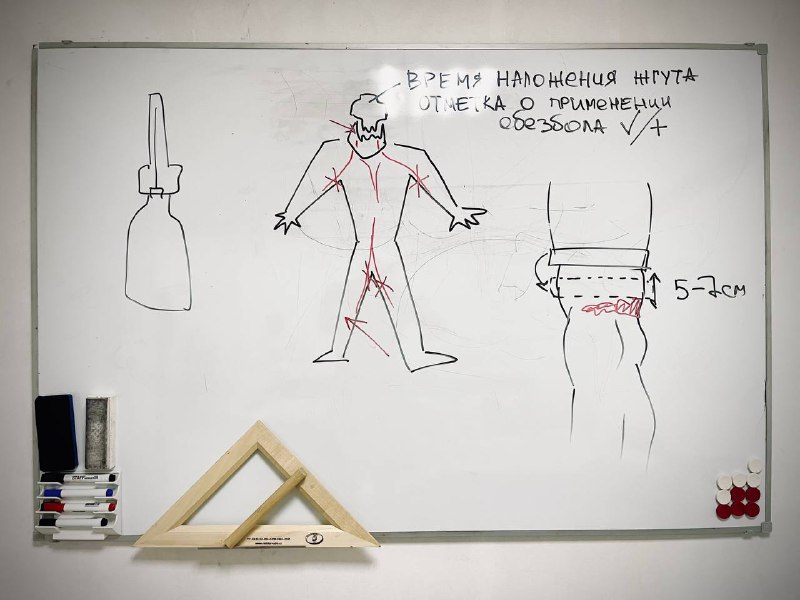 ВРЕМЯ НАЛОЖЕНИЯ ЖГУТА
ОТМЕТКА О ПРИМЕНЕНИИ
ОБЕЗБОЛА ✓/+
5-7см
STAFF